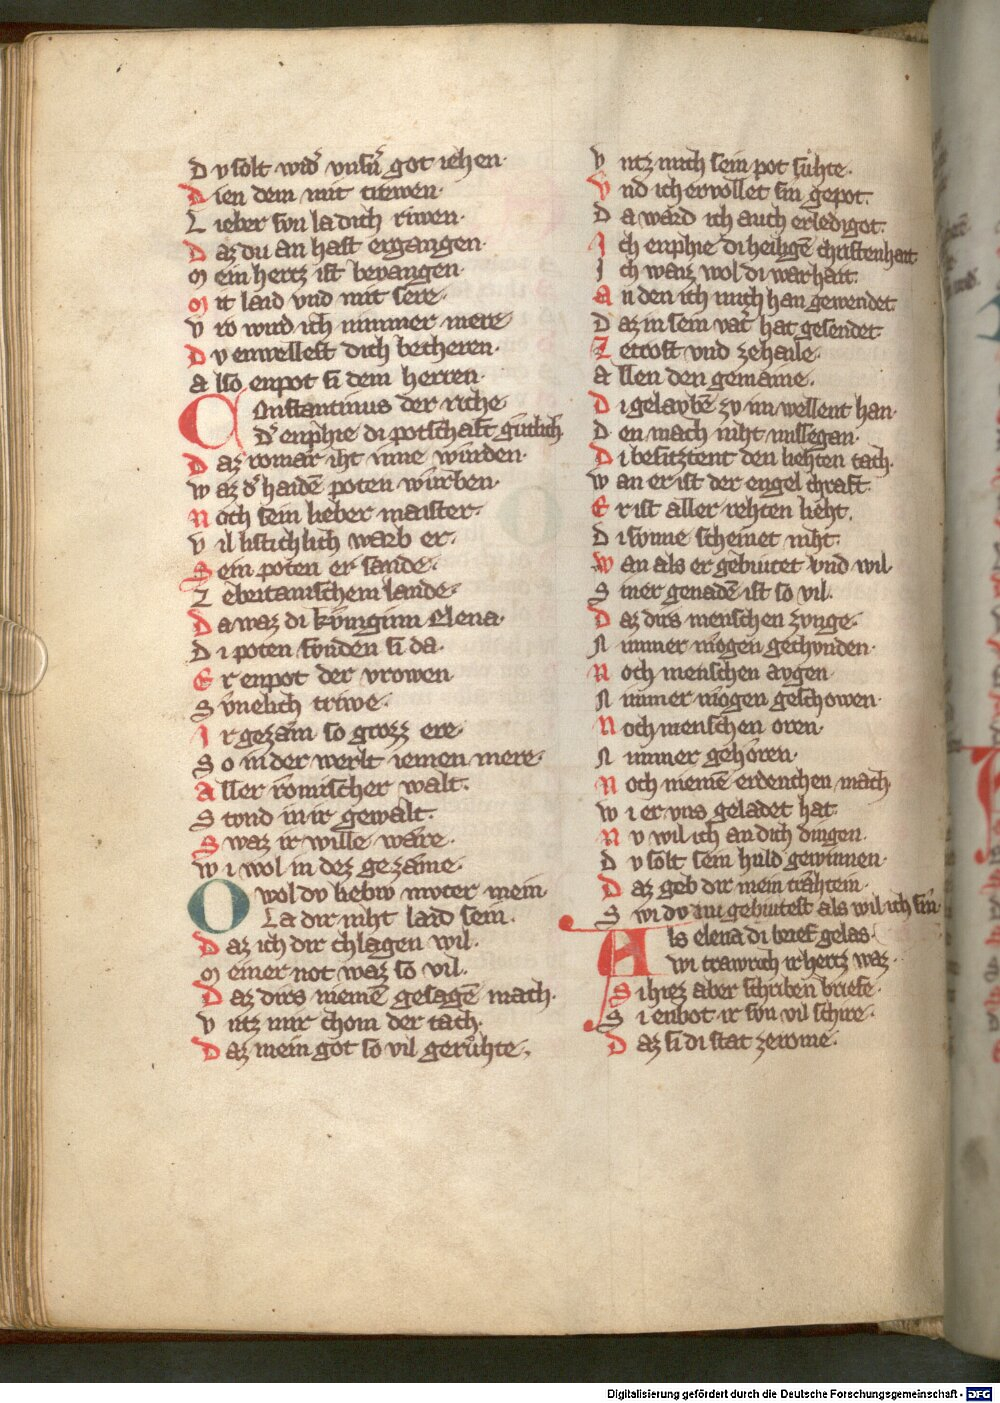 D v solt wid͛ vnsn͛ got iehen·
D ien dem mit triwen·
L ieber svn la dich riwen·
D az du an hast ergangen·
M ein hertz ist bevangen·
M it laid vnd mit sere·
V ro wird ich nimmer mere
D v enwellest dich becheren·
A lso enpot si dem herren·
C Onstantinus der riche
D͛ enphie di potschaft gütlich
D az romær iht inne wurden·
W az d͛ haidē poten wurben·
N och sein lieber maister·
V il listichlich warb er·
S ein poten er sande·
Z ebritanischem lande·
D a waz di kvnginn Elena·
D i poten fvnden si da·
E r enpot der vrowen
S vnelich triwe·
I r gezam so grozz ere·
S o in der werlt iemen mere·
A ller römischer walt·
S tvnd in ir gewalt·
S waz ir wille wære·
W i wol in dez gezæme·
O wol dv liebiv mvter mein·
La dir niht laid sein·
D az ich dir chlagen wil·
M einer not waz so vil·
D az dirs niemē gesagē mach·
V ntz mir chom der tach·
D az mein got so vil gerůhte·
V ntz mich sein pot sůhte·
V nd ich ervollet sin gepot·
D a ward ich auch erledigot·
I ch enphie di heiligē christenhait
I ch waiz wol di warhait·
A n den ich mich han gewendet
D az in sein vat͛ hat gesendet
Z etrost vnd zehaile·
A llen den gemaine·
D i gelaybē zv im wellent han·
D en mach niht missegan·
D i besitztent den liehten tach·
W an er ist der engel chraft·
E r ist aller rehten lieht·
D i svnne scheinet niht·
W an als er gebiutet vnd wil
S iner genadē ist so vil·
D az dirs menschen zvnge·
N immer mögen gechvnden·
N och menschen avgen·
N immer mögen geschowen·
N och menschen oren·
N immer gehören·
N och niemē erdenchen mach
W i er vns geladet hat·
N v wil ich an dich dingen·
D v solt sein huld gewinnen·
D az geb dir mein træhtein·
S wi dv mi gebiutest als wil ich sin·
A ls elena di brief gelas·
wi trawrich ir hertz waz·
S i hiez aber schriben briefe·
S i enbot ir svn vil schire·
D az si di stat zerome·
Digitalisierung gefördert durch die Deutsche Forschungsgemeinschaft - DFG